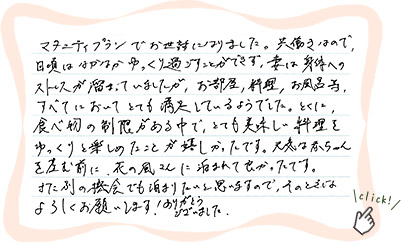 マタニティプランでお世話になりました。共働きなので、
日頃はなかなかゆっくり過ごすことができず、妻は身体への
ストレスが溜まっていましたが、お部屋、料理、お風呂等、
すべてにおいてとても満足しているようでした。とくに、
食べ物の制限がある中で、とても美味しい料理を
ゆっくりと楽しめたことが嬉しかったです。元気な赤ちゃん
を産む前に、花の風さんに泊まれて良かったです。
また別の機会でも泊まりたいと思いますので、そのときは
よろしくお願いします!ありがとう
ございました。
click!